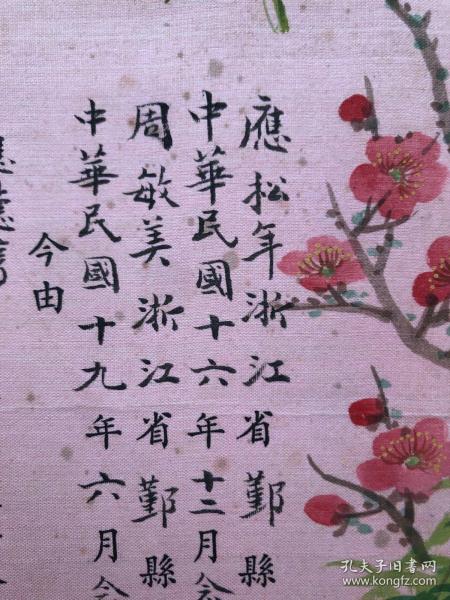 應松年浙江省鄞縣
中華民國十六年十二月
周敏美浙江省鄞縣
中華民國十九年六月
今由
孔夫子旧书网
www.kongfz.com